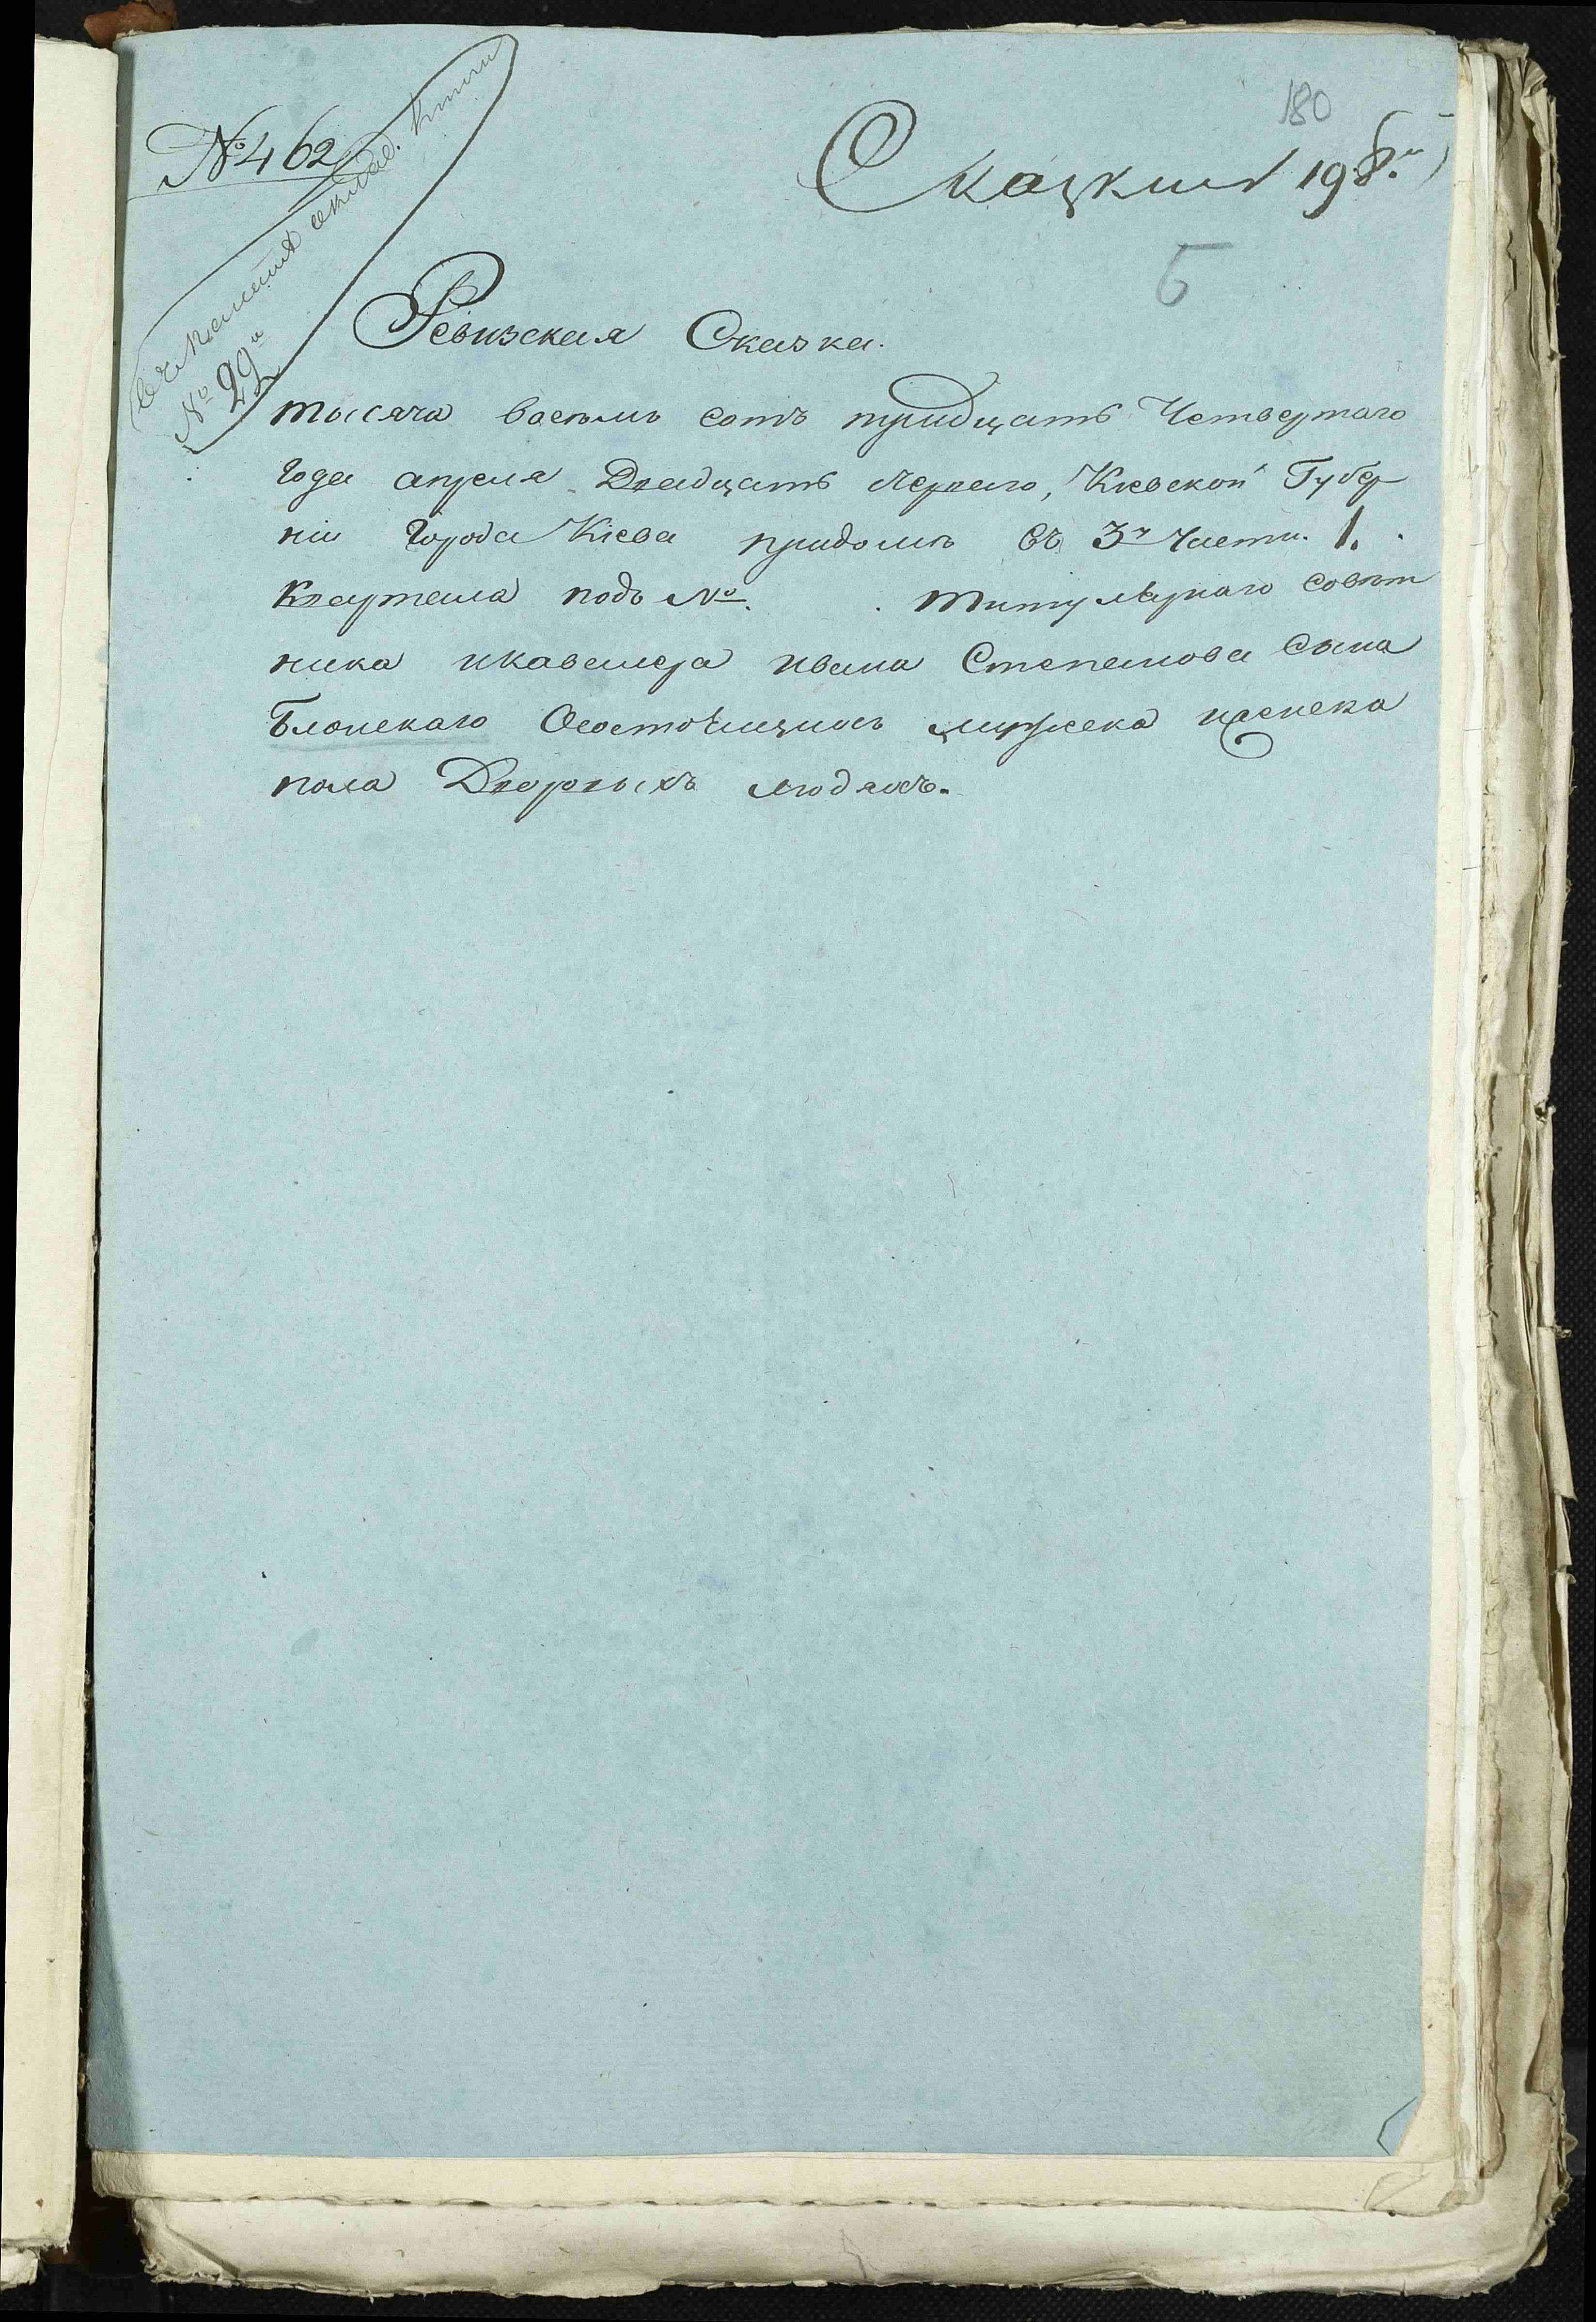 № 462
180
Скацкий 198.й
Б
№ 29й
Ревизская Сказка.
тысяча восемь сотъ тридцать Четвертаго
Года апреля Двадцать перваго, Киевской Губер
нии Города Кіева придомъ въ 3й Части. 1.
Квартала подъ №. Титулярнаго совѣт
ника икавалера ивана Степанова Сына
Блонскаго Осостоящихъ мужеска иженска
пола Дворовыхъ людяхъ.